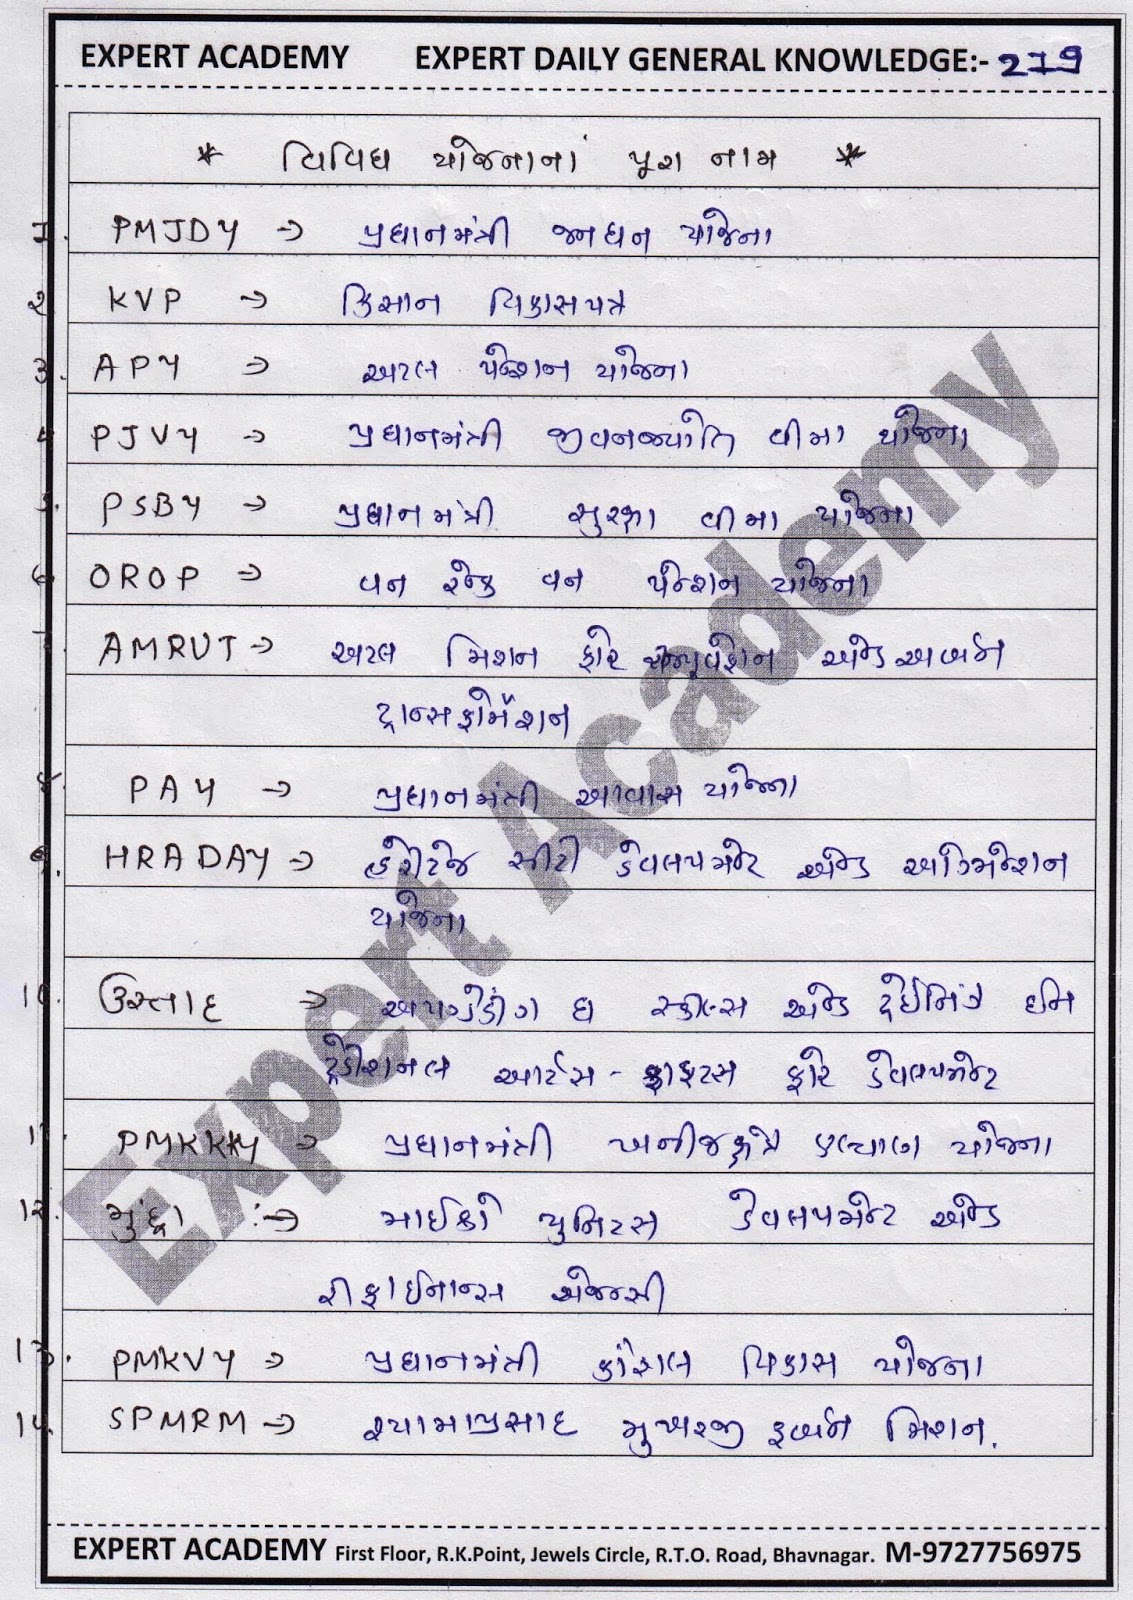 EXPERT ACADEMY EXPERT DAILY GENERAL KNOWLEDGE:- 279
* વિવિધ યોજનાનાં પૂરા નામ *
1. PMJDY → પ્રધાનમંત્રી જનધન યોજના
2. KVP → કિસાન વિકાસપત્ર
3. APY → અટલ પેન્શન યોજના
4. PJVY → પ્રધાનમંત્રી જીવનજ્યોતિ વીમા યોજના
5. PSBY → પ્રધાનમંત્રી સુરક્ષા વીમા યોજના
6. OROP → વન રેન્ક વન પેન્શન યોજના
7. AMRUT → અટલ મિશન ફોર રેન્યુવેશન એન્ડ અર્બન
ટ્રાન્સફોર્મેશન
8. PAY → પ્રધાનમંત્રી આવાસ યોજના
9. HRADAY → હેરીટેજ સીટી ડેવલપમેન્ટ એન્ડ ઓગ્મેન્શન
યોજના
10. ઉસ્તાદ → અપગ્રેડીંગ ધ સ્કીલ્સ એન્ડ ટ્રેઈનિંગ ઈન
ટ્રેડીશનલ આર્ટસ - ક્રાફ્ટસ ફોર ડેવલપમેન્ટ
11. PMKKKY → પ્રધાનમંત્રી ખનીજક્ષેત્ર કલ્યાણ યોજના
12. મુંદ્રા :→ માઈક્રો યુનિટસ ડેવલપમેન્ટ એન્ડ
રીફાઈનાન્સ એજન્સી
13. PMKVY → પ્રધાનમંત્રી કૌશલ વિકાસ યોજના
14. SPMRM → શ્યામાપ્રસાદ મુખરજી રૂર્બન મિશન.
EXPERT ACADEMY First Floor, R.K.Point, Jewels Circle, R.T.O. Road, Bhavnagar. M-9727756975
Expert Academy